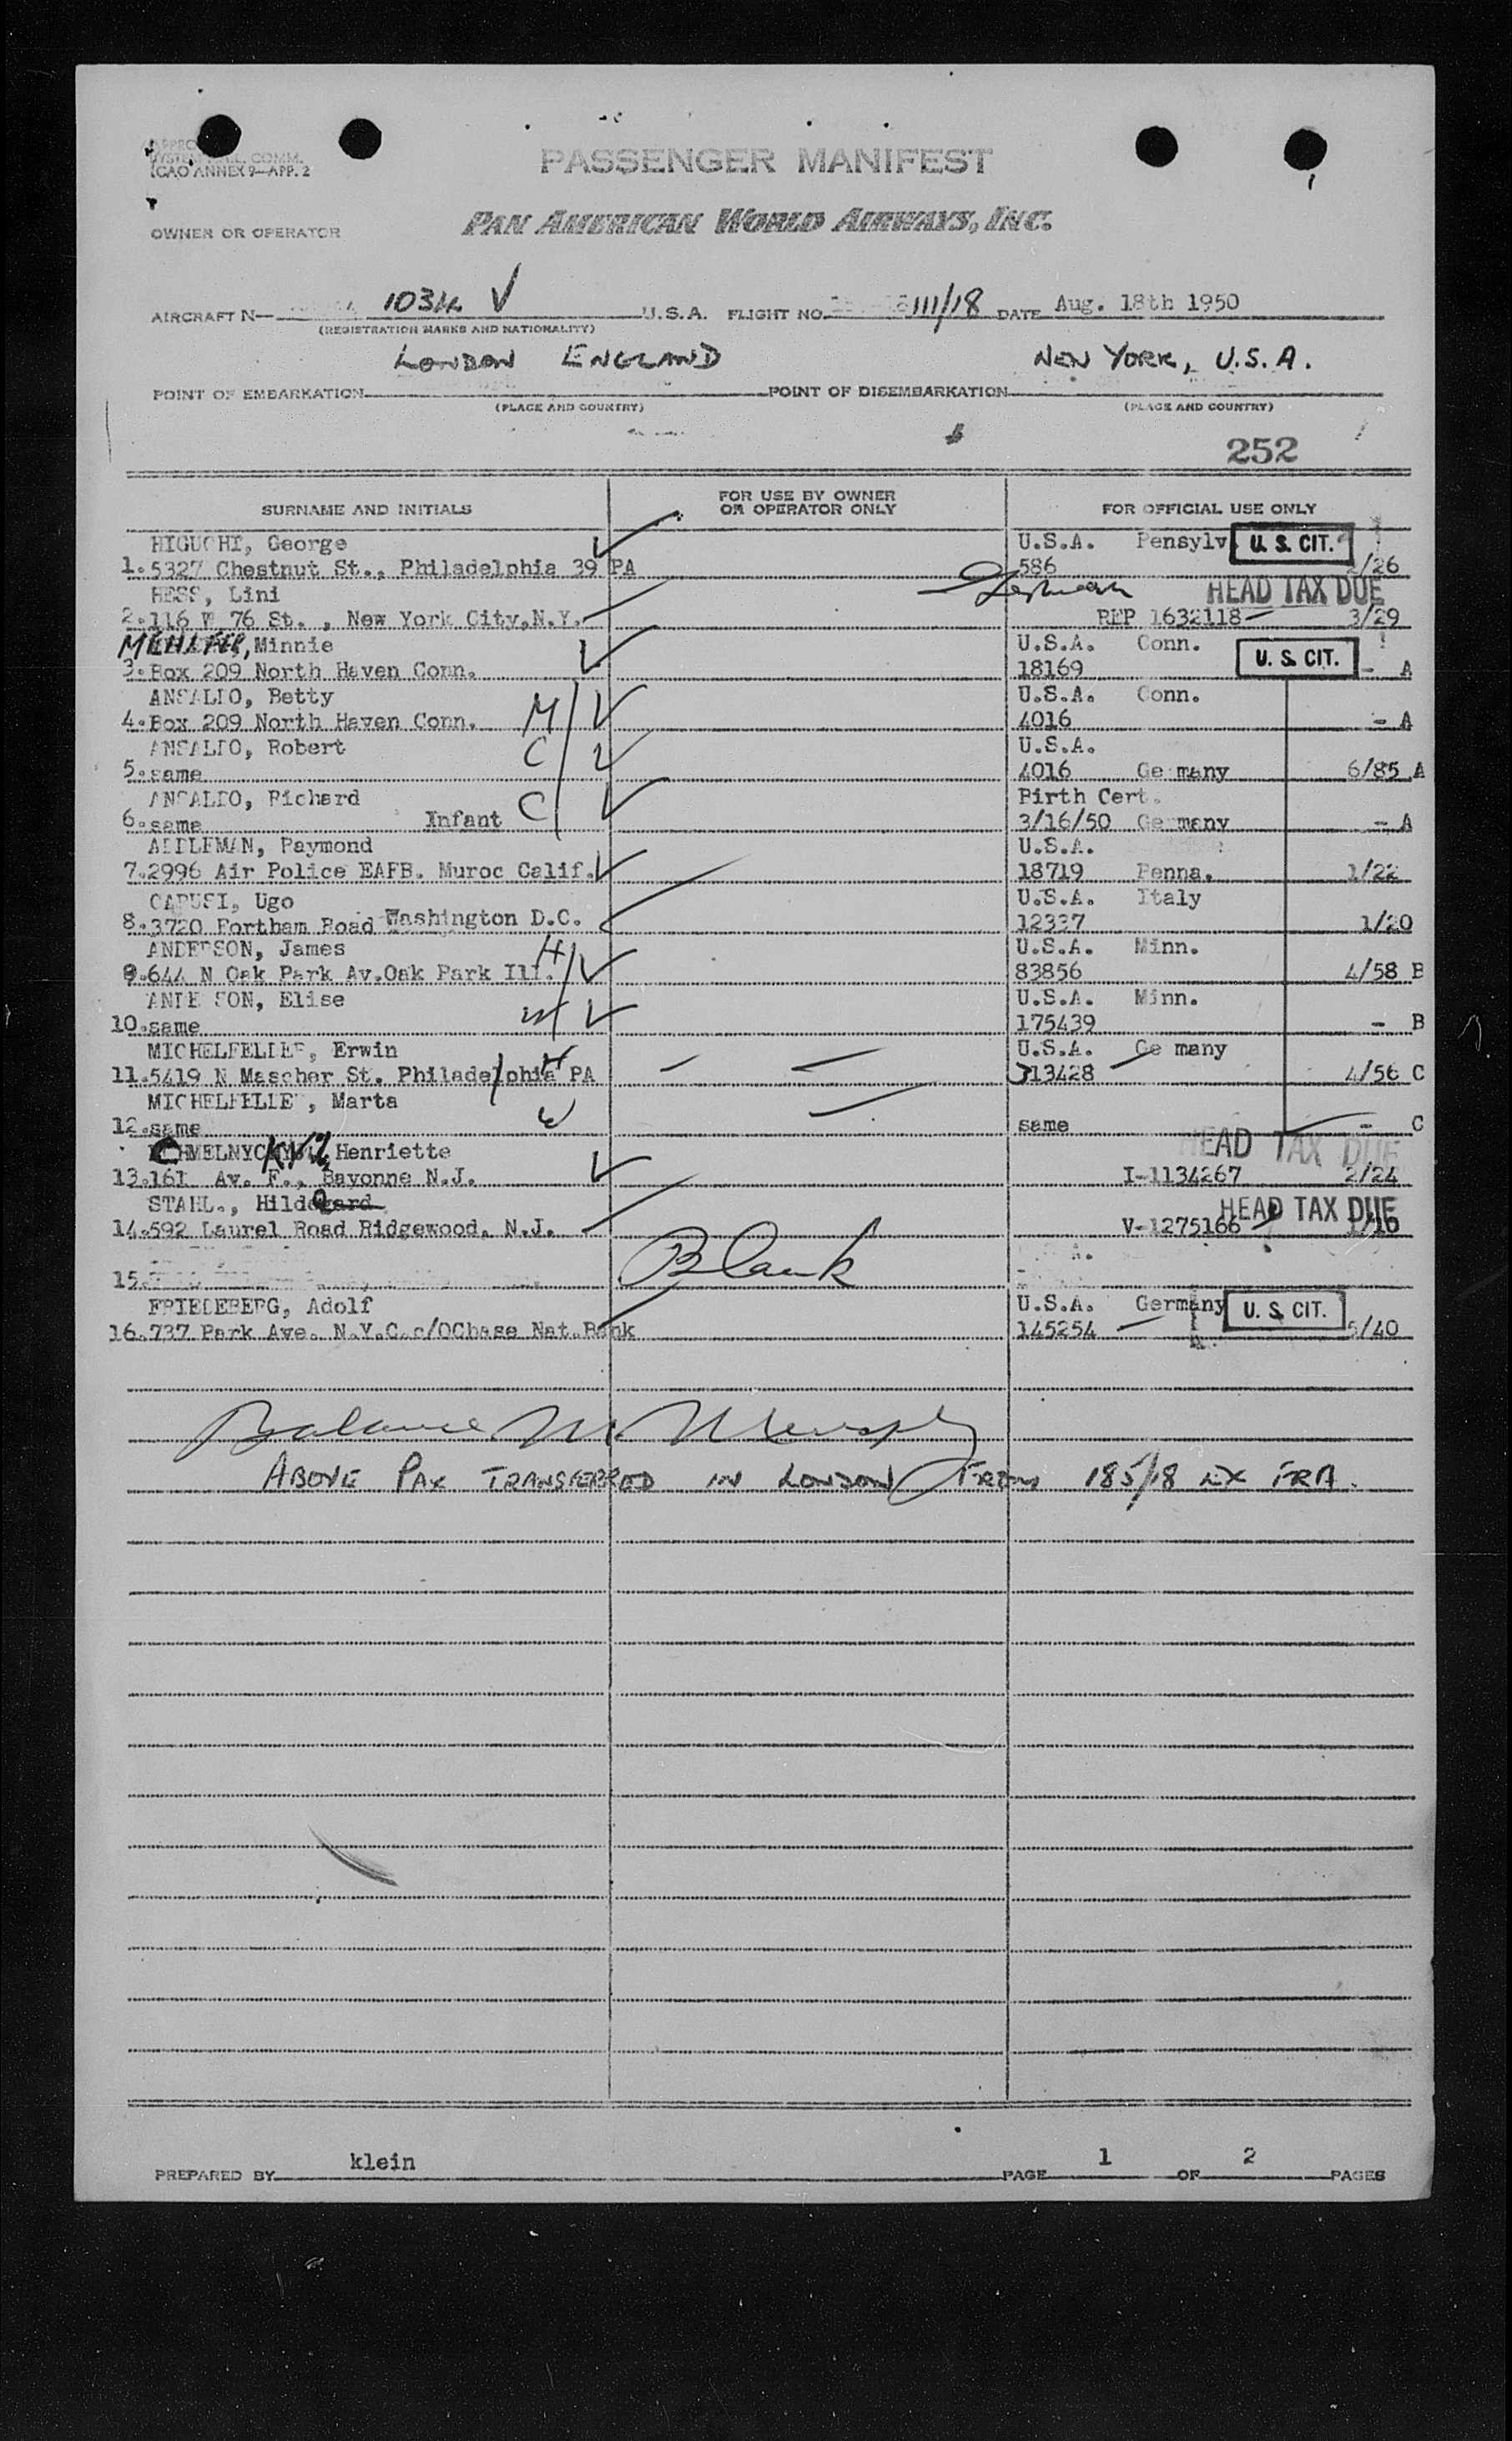 ICAO ANNEX 9—APP. 2
PASSENGER MANIFEST
OWNER OR OPERATOR
PAN AMERICAN WORLD AIRWAYS, INC.
AIRCRAFT N— 1034 V U.S.A. FLIGHT NO. 111/18 DATE Aug. 18th 1950
(REGISTRATION MARKS AND NATIONALITY)
LONDON ENGLAND NEW YORK, U.S.A.
POINT OF EMBARKATION POINT OF DISEMBARKATION
(PLACE AND COUNTRY) (PLACE AND COUNTRY)
252
SURNAME AND INITIALS FOR USE BY OWNER OR OPERATOR ONLY FOR OFFICIAL USE ONLY
HIGUCHI, George U.S.A. Pensylv U. S. CIT.
1. 5327 Chestnut St., Philadelphia 39 PA 586 /26
HESS, Lini German HEAD TAX DUE
2. 116 W 76 St. , New York City,N.Y. REP 1632118 3/29
Minnie U.S.A. Conn. U. S. CIT.
3. Box 209 North Haven Conn. 18169 - A
ANSALDO, Betty U.S.A. Conn.
4. Box 209 North Haven Conn. M 4016 - A
ANSALDO, Robert C U.S.A.
5. same 4016 Ge many 6/85 A
ANSALDO, Richard C Birth Cert.
6. same Infant 3/16/50 Ge many - A
ADLEMAN, Raymond U.S.A.
7. 2996 Air Police EAFB. Muroc Calif. 18719 Penna. 1/22
CAPUSI, Ugo U.S.A. Italy
8. 3720 Fortham Road Washington D.C. 12337 1/20
ANDERSON, James H U.S.A. Minn.
9. 644 N Oak Park Av.Oak Park Ill. 83856 4/58 B
ANDE SON, Elise W U.S.A. Minn.
10. same 175439 - B
MICHELFELDER, Erwin H U.S.A. Ge many
11. 5419 N Mascher St. Philadelphia PA 313428 4/56 C
MICHELFELDE , Marta W
12. same same - C
Henriette HEAD TAX DUE
13. 161 Av. F., Bayonne N.J. I-1134267 2/24
STAHL., Hilde gard HEAD TAX DUE
14. 592 Laurel Road Ridgewood, N.J. V-1275166 1/16
15. Blank
FRIEDEBERG, Adolf U.S.A. Germany U. S. CIT.
16. 737 Park Ave. N.Y.C.c/OChase Nat.Bank 145254 5/40
Balance M. Murphy
ABOVE PAX TRANSFERRED IN LONDON FROM 185/18 EX FRA.
PREPARED BY klein PAGE 1 OF 2 PAGES